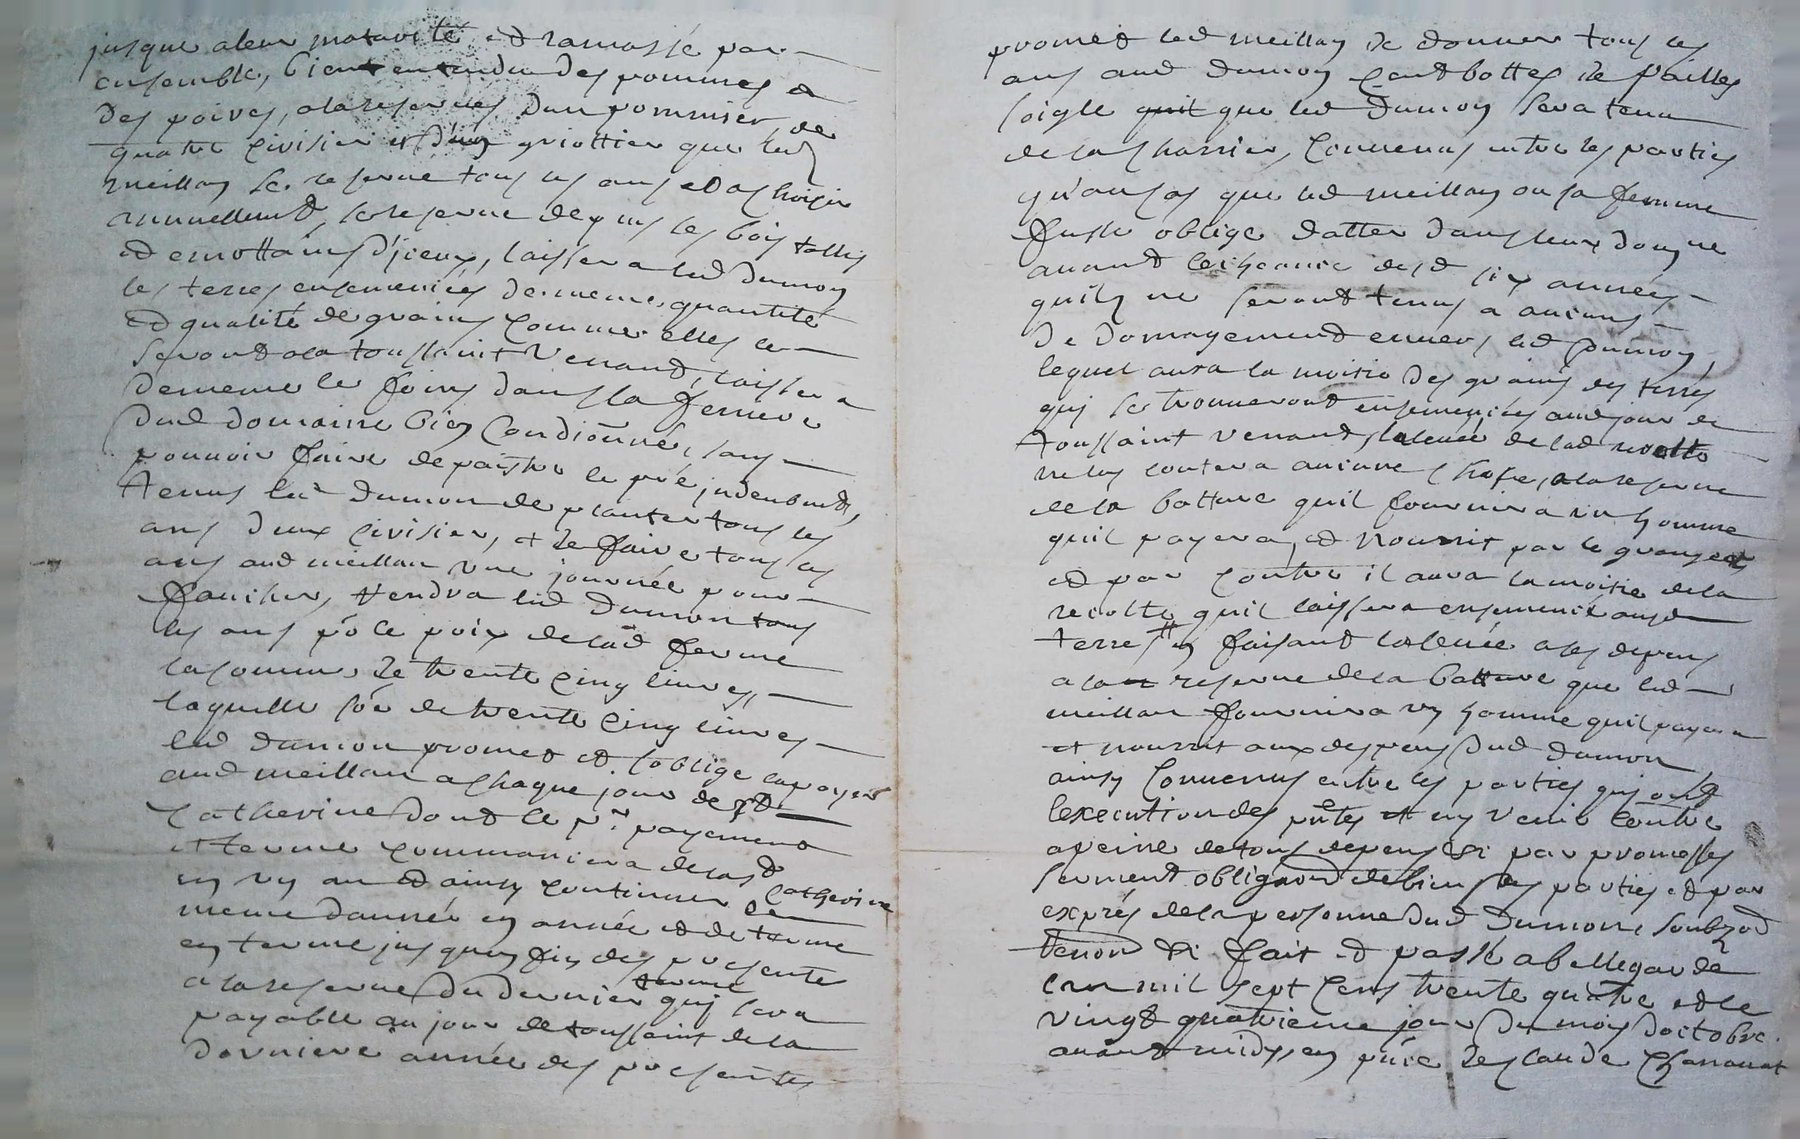 jusque a leur maturité et ramassé par
ensemble, bient entendu des pommes et
des poires, a la reserves dun pommier, de
quatre civisier et d'un griottier que led
meillan se reserve tous les ans et a choisir
annuellement, se reserve de plus les bois tallis
et emottains d'jceux, laissera led dumon
les terres ensemencées de meme quantité
et qualité de grains comme elles le
seront a la toussaint venant, laissera
de meme le foins dans la feniere
dud domaine bien condionné, sans
pouvoir faire depaistre le pré, jndeubment,
tenus led dumon de planter tous les
ans deux civisier, et de faire tous les
ans aud meillan une journée pour
faucher, tiendra led dumon tous
les ans po le poix de lad ferme
la somme de trente cinq livres,
laquelle soe de trente cinq livres
led dumon promet et soblige la payer
aud meillan a chaque jour de ste
Catherine dont le pr payement
et terme commancera de la ste Catherine
en un an et ainsy continuer de
meme dannée en année et de terme
en terme jusques en fin des presente
a la reserve du dernier terme quj sera
payable au jour de toussaint de la
derniere année des presentes
promet led meillan de donner tous les
ans aud dumon cent bottes de pailles
soigle quil que led dumon sera tenu
de la charrier, convenus entre les parties
qu'au cas que led meillan ou sa femme
fusse oblige datter dans leur domne
avant lecheance desd six années
quils ne seront tenus a aucuns
de domagement envers led dumon,
lequel aura la moitie des grains des terres
quj se trouveront ensemencées aud jour de
toussaint venant, la levée de lad recolte
ne luy coutera aucune chose, a la reserve
de la batture quil fournira un homme
quil payera, et nourrit par le granger
et par contre il aura la moitie de la
recolte quil laissera ensemencé ausd
terres en faisant la levée a ses depens
a la reserve de la batture que led
meillan fournira un homme quil payera
et nourrit aux despens dud dumon
ainsy convenus entre les parties quj ont
lexecution des pntes et ny venir contre
a peine de tous depens &i par promesses
serment obligaon de biens des parties et par
exprés de la personne dud dumon, soubz
tenon &i fait et passé a bellegarde
lan mil sept cens trente quatre et le
vingt quatrieme jour du mois doctobre
avant midy en pnce de claude Chanavat